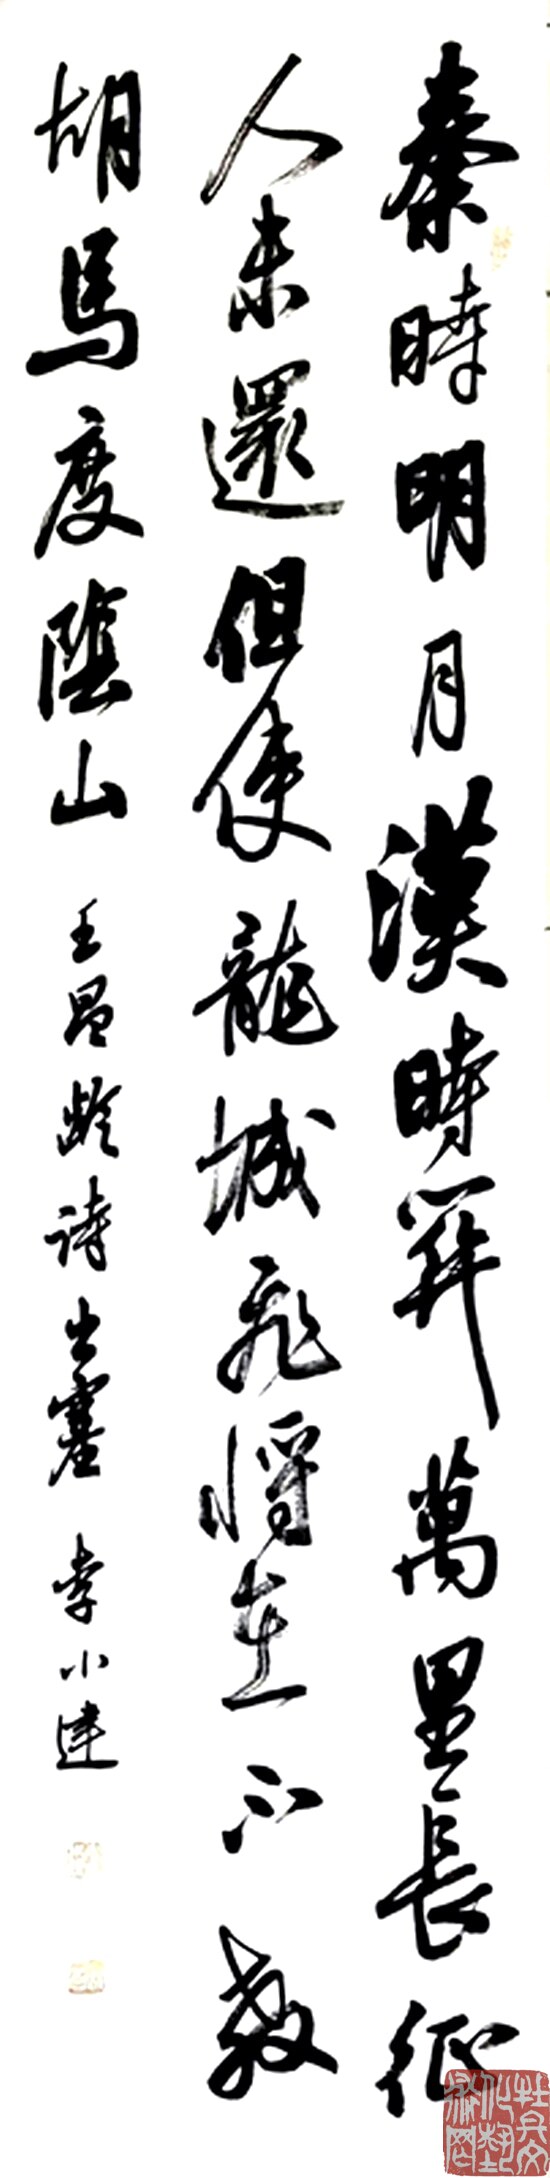 秦時明月漢時關萬里長征
人未還但使龍城飛將在不教
胡馬度陰山 王昌齡詩出塞 李小達